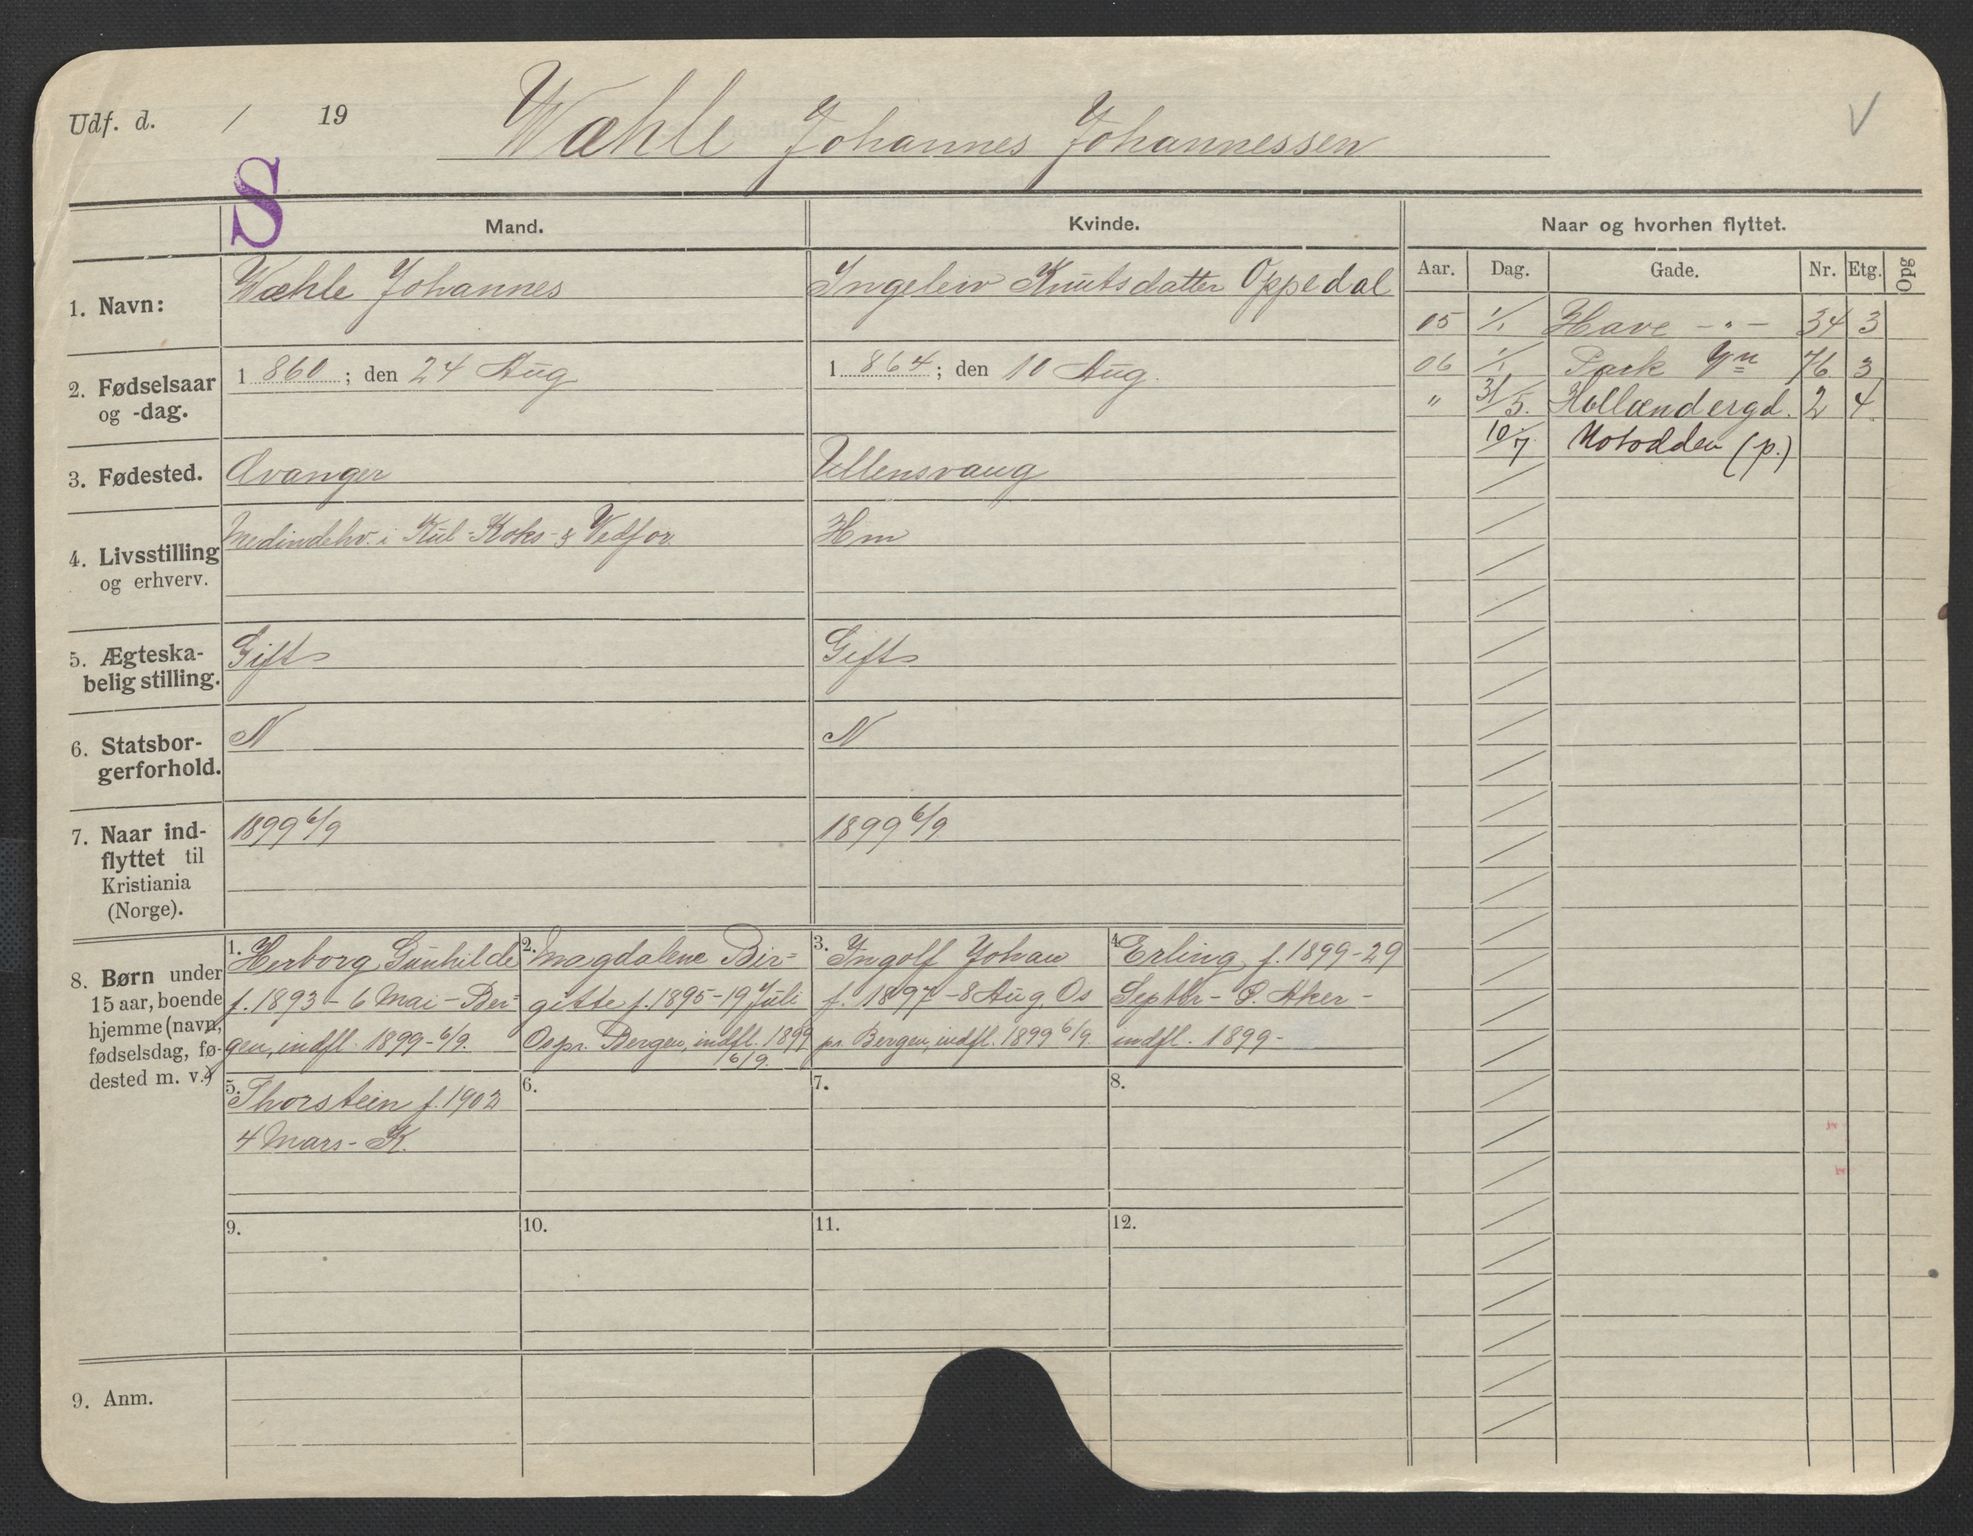 Udf. d. / 19
Wæhle Johannes Johannessen
V
S
Mand.
Kvinde.
Naar og hvorhen flyttet.
Aar. Dag. Gade. Nr. Etg. Opg
1. Navn:
Wæhle Johannes
Ingeleiv Knutsdatter Oppedal
05 1/1 Have - " - 34 3
2. Fødselsaar
og -dag.
1 860 ; den 24 Aug
1 864 ; den 10 Aug.
06 1/1 Park 76 3
" 31/5. Hollændergd. 2 4
10/7 Notodden (p.)
3. Fødested.
Avanger
Ullensvang
4. Livsstilling
og erhverv.
Medindehv. i Kul- Koks- & Vedfor.
Hm
5. Ægteska-
belig stilling.
Gift
Gift
6. Statsbor-
gerforhold.
N
N
7. Naar ind-
flyttet til
Kristiania
(Norge).
1899 6/9
1899 6/9
8. Børn under
15 aar, boende
hjemme (navn,
fødselsdag, fø-
dested m. v.)
1. Herborg Gunhilde
f. 1893 - 6 Mai - Ber-
gen, indfl. 1899 - 6/9.
2. Magdalene Bir-
gitte f. 1895 - 19 Juli
Os pr. Bergen, indfl. 1899
6/9.
3. Ingolf Johan
f. 1897 - 8 Aug. Os
pr. Bergen, indfl. 1899 6/9.
4. Erling f. 1899 - 29
Septbr - Ø. Aker -
indfl. 1899 -
5. Thorstein f. 1902
4 Mars - K.
6.
7.
8.
9.
10.
11.
12.
9. Anm.